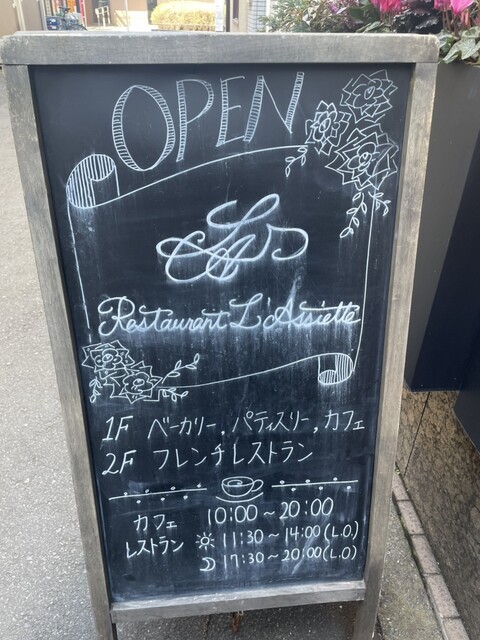 OPEN
LA
Restaurant L'Assiette
1F ベーカリー, パティスリー, カフェ
2F フレンチレストラン
カフェ 10:00~20:00
レストラン 11:30~14:00(L.O.)
17:30~20:00(L.O)